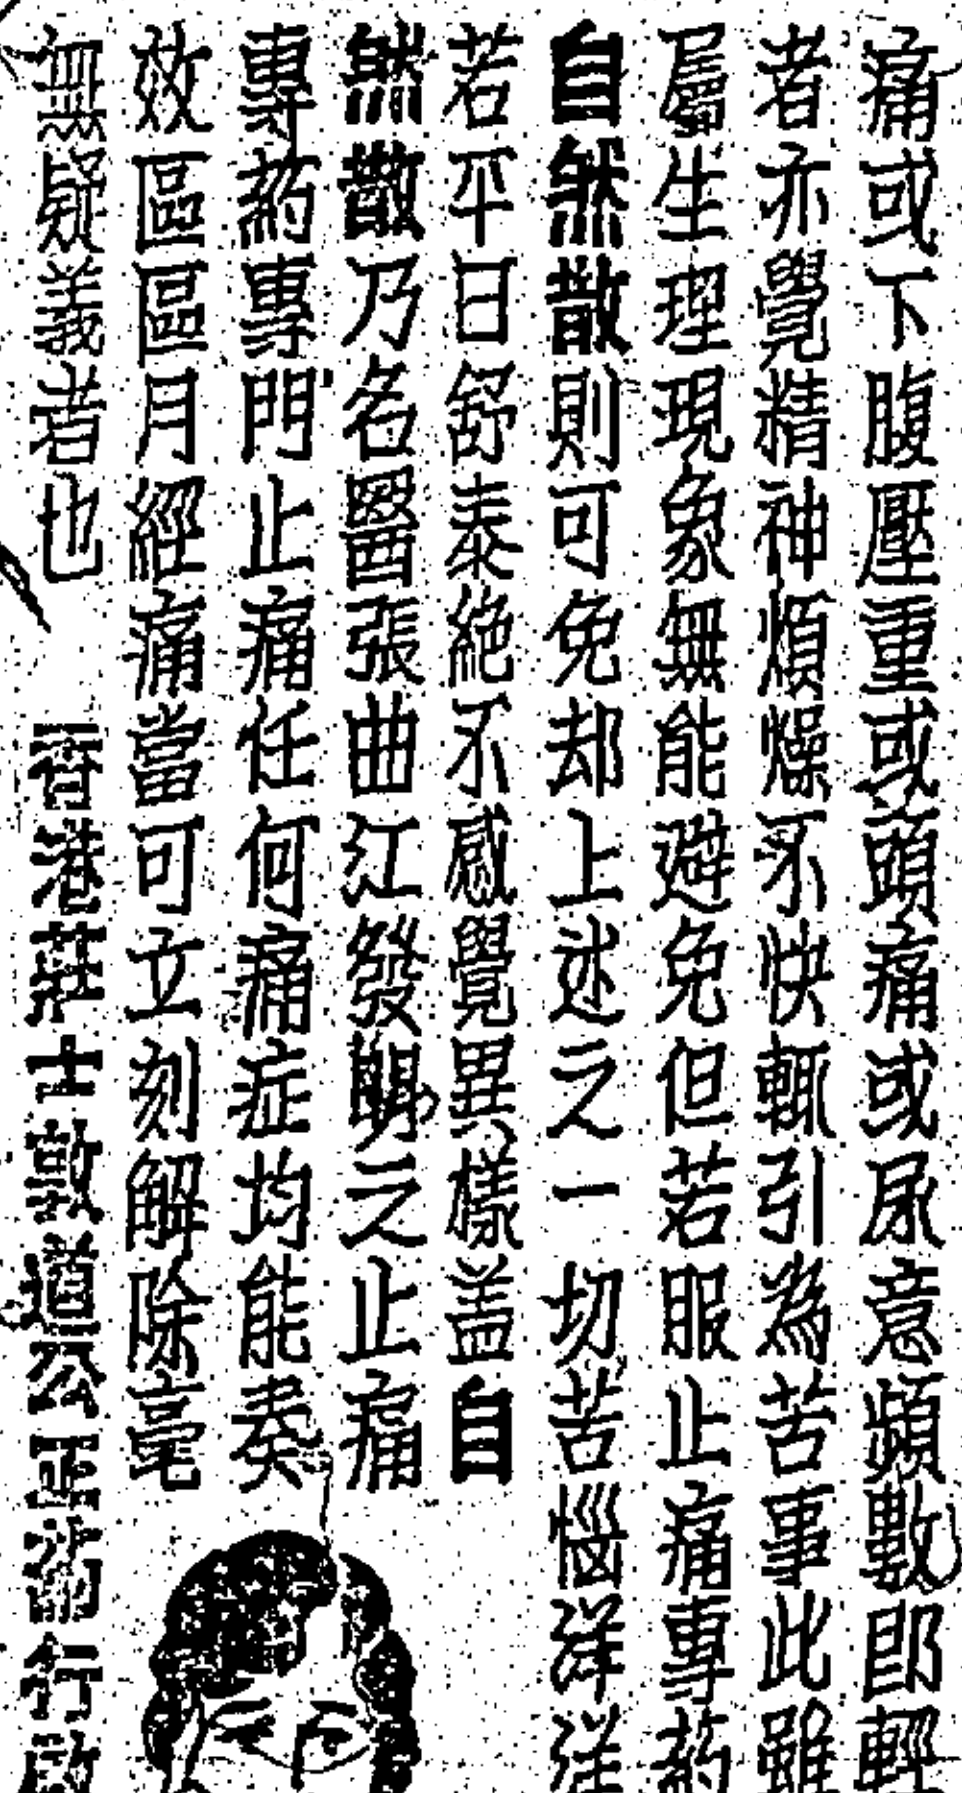 痛或下腹壓重或頭痛或尿意頻數卽輕
者亦覺精神煩燥不快輒引為苦事此雖
屬生理現象無能避免但若服止痛專葯
自然散則可免却上述之一切苦惱洋洋
若平日舒泰絕不感覺異樣盖自
然散乃名醫張曲江發明之止痛
專葯專門止痛任何痛症均能奏
效區區月經痛當可立刻解除毫
無疑義者也 香港莊士敦道公正葯行啟